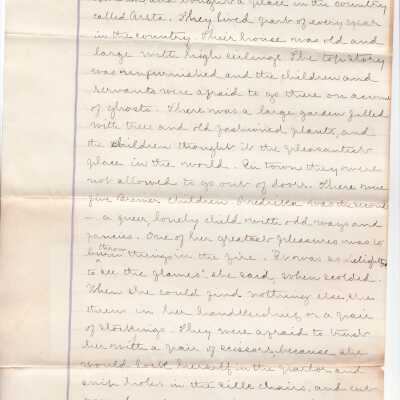 and bought a place in the country
called Arsta. They lived part of every year
in the country. Their house was old and
large with high ceilings. The top story
was unfurnished and the children and
servants were afraid to go there on account
of ghosts. There was a large garden filled
with trees and old fashioned plants, and
the children thought it the pleasantest
place in the world. In town they were
not allowed to go out of doors. There were
five Bremer children. Fredrika was the second
- a queer, lonely child with odd ways and
fancies. One of her greatest pleasures was to
throw things in the fire. It was so delightful
to "see the flames" she said, when scolded.
When she could find nothing else, she
threw in her handkerchief or a pair
of stockings. They were afraid to trust
her with a pair of scissors, because she
would lock herself in the parlor and
snip holes in the silk chairs, and cut